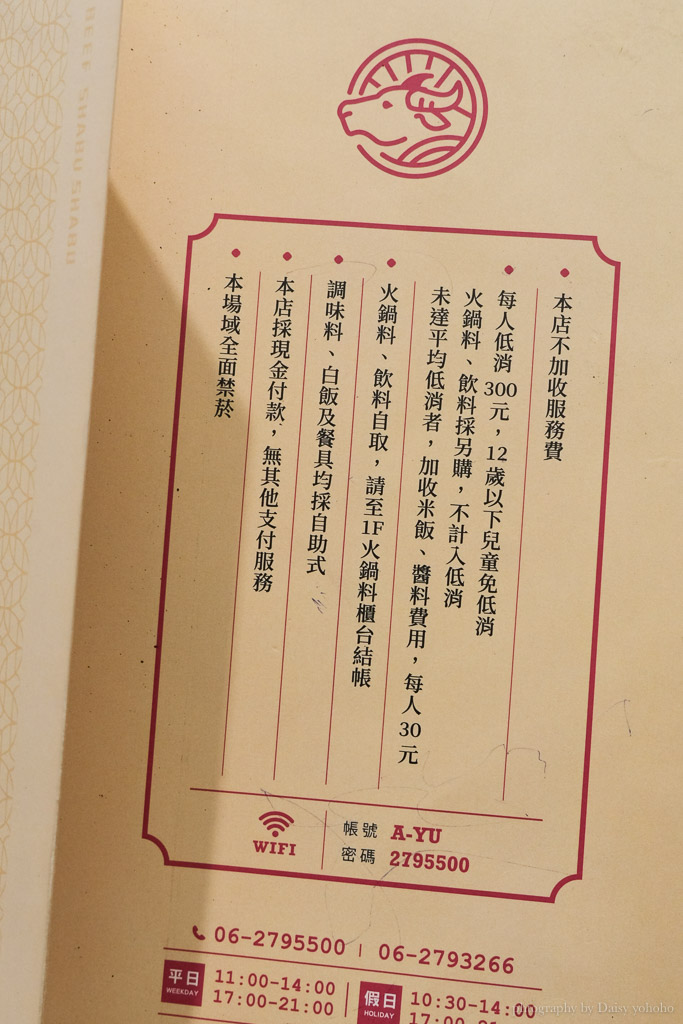 BEEF SHABU SHABU
本店不加收服務費
每人低消 300元，12 歲以下兒童免低消
火鍋料、飲料採另購，不計入低消
未達平均低消者，加收米飯、醬料費用，每人 30 元
火鍋料、飲料自取，請至1F火鍋料櫃台結帳
調味料、白飯及餐具均採自助式
本店採現金付款，無其他支付服務
本場域全面禁菸
WIFI
帳號 A-YU
密碼 2795500
06-2795500 | 06-2793266
平日 WEEKDAY
11:00-14:00
17:00-21:00
假日 HOLIDAY
10:30-14:00
photography by Daisy yohoho